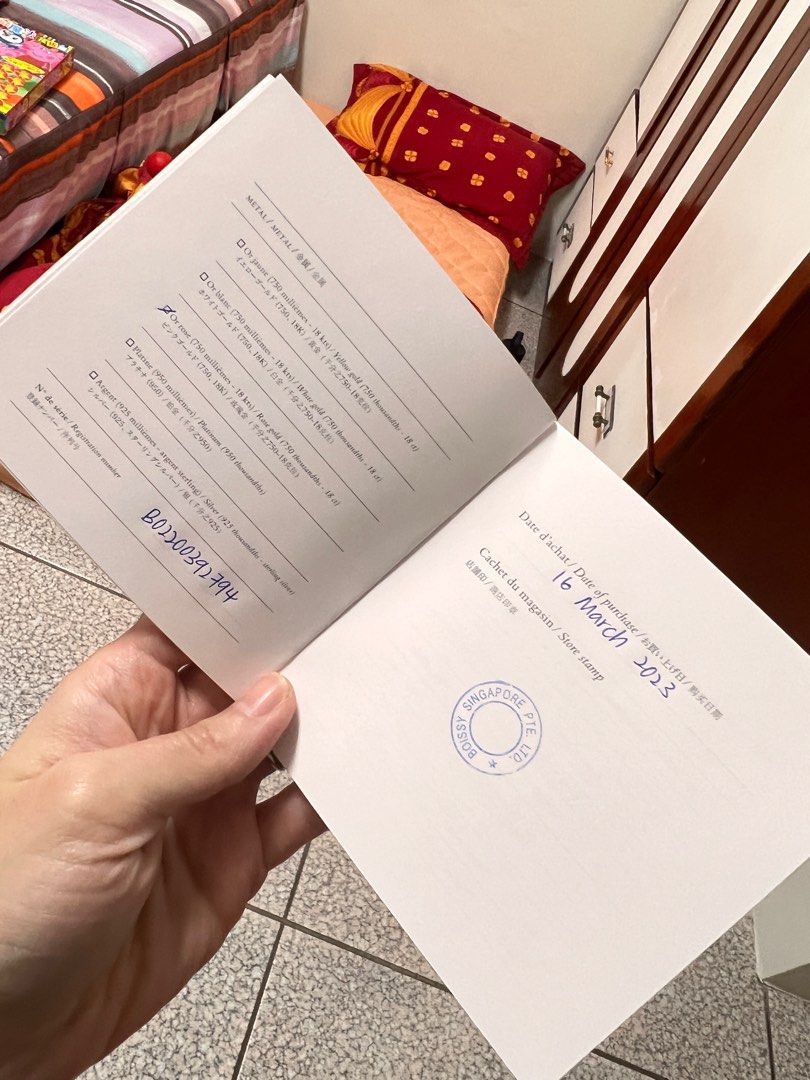 METAL / METAL / 金属 / 金属
Or jaune (750 millièmes - 18 kts) / Yellow gold (750 thousandths - 18 ct)
イエローゴールド (750, 18K) / 黄金 (千分之750-18克拉)
Or blanc (750 millièmes - 18 kts) / White gold (750 thousandths - 18 ct)
ホワイトゴールド (750, 18K) / 白金 (千分之750-18克拉)
Or rose (750 millièmes - 18 kts) / Rose gold (750 thousandths - 18 ct)
ピンクゴールド (750, 18K) / 玫瑰金 (千分之750-18克拉)
Platine (950 millièmes) / Platinum (950 thousandths)
プラチナ (950) / 铂金 (千分之950)
Argent (925 millièmes - argent sterling) / Silver (925 thousandths - sterling silver)
シルバー (925, スターリングシルバー) / 银 (千分之925)
N° de série / Registration number
登録ナンバー / 序列号
B02200392794
Date d'achat / Date of purchase / お買い上げ日 / 购买日期
16 March 2023
Cachet du magasin / Store stamp
店舗印 / 商店印章
BOISSY SINGAPORE PTE. LTD.